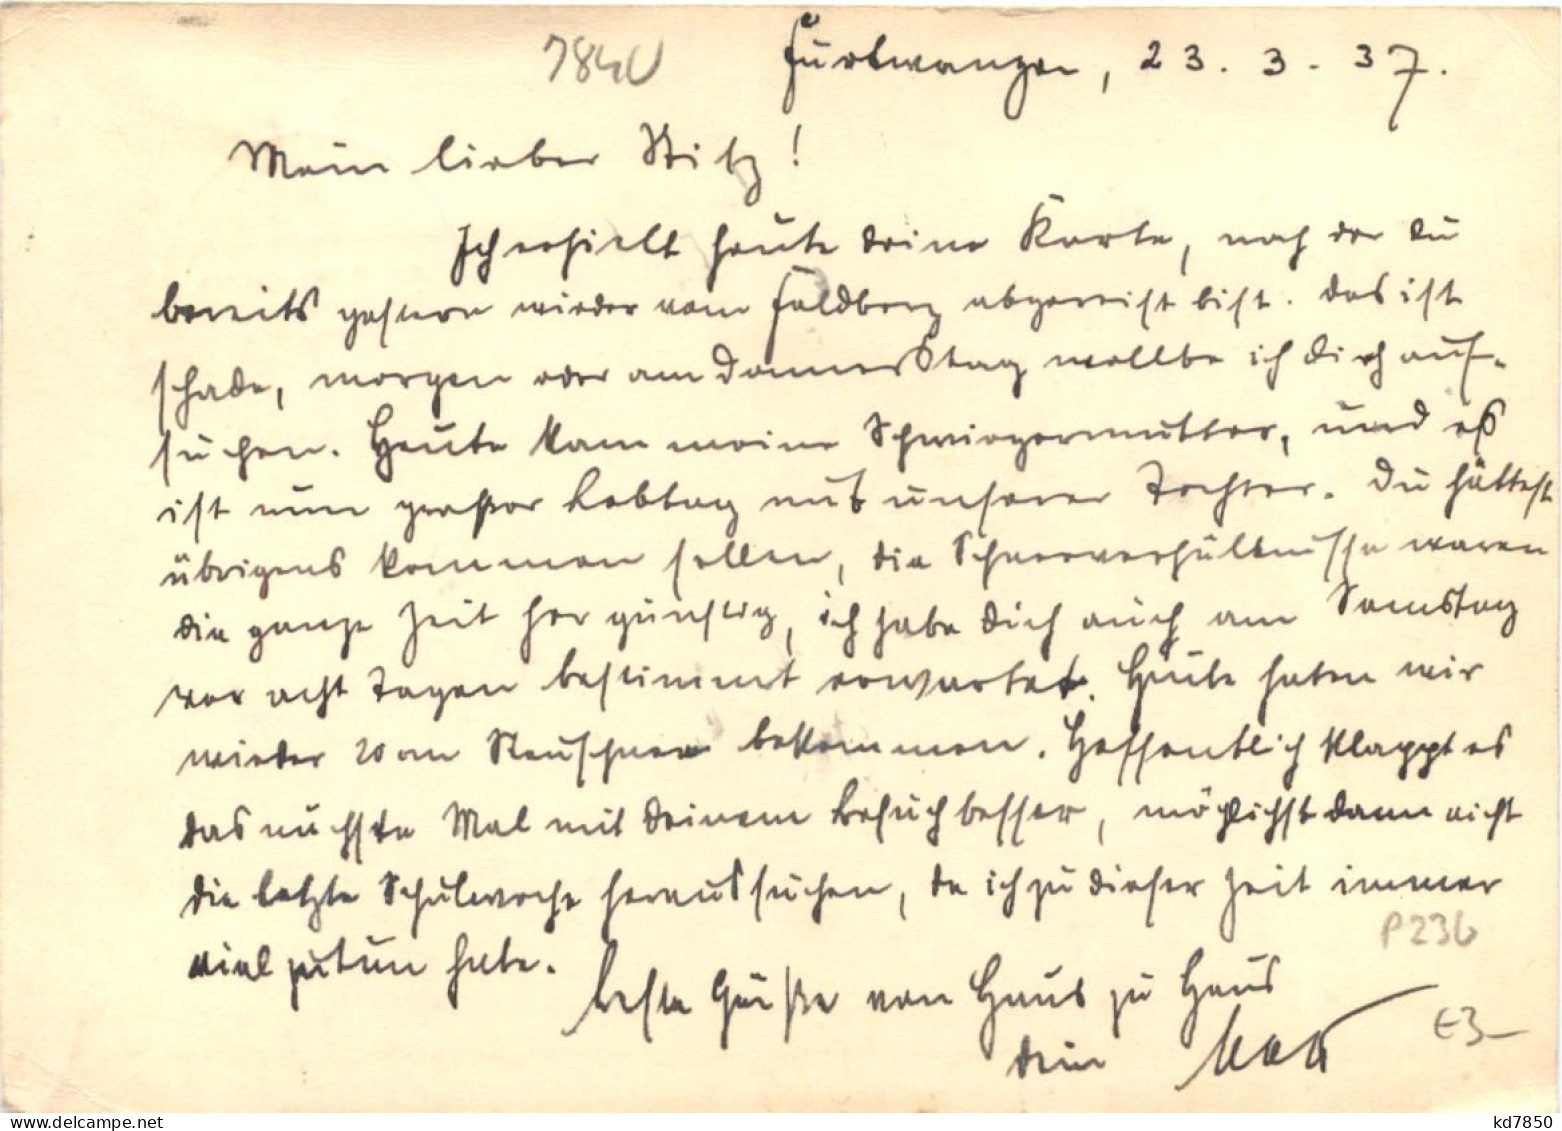 7840
Furtwangen, 23. 3. 37.
Mein lieber Stitz!
Ich erhielt heute deine Karte, nach der du
bereits gestern wieder vom Feldberg abgereist bist. Das ist
schade, morgen oder am Donnerstag wollte ich dich auf-
suchen. Heute kam meine Schwiegermutter, und es
ist nun großer Lebtag mit unserer Tochter. Du hättest
übrigens kommen sollen, die Schneeverhältnisse waren
die ganze Zeit her günstig, ich habe dich auch am Samstag
vor acht Tagen bestimmt erwartet. Heute haben wir
wieder 20 cm Neuschnee bekommen. Hoffentlich klappt es
das nächste Mal mit deinem Besuch besser, möglichst dann nicht
die letzte Schulwoche heraussuchen, da ich zu dieser Zeit immer
viel zu tun habe.
P236
Beste Grüße von Haus zu Haus
€3-
dein
kd7850
www.delcampe.net